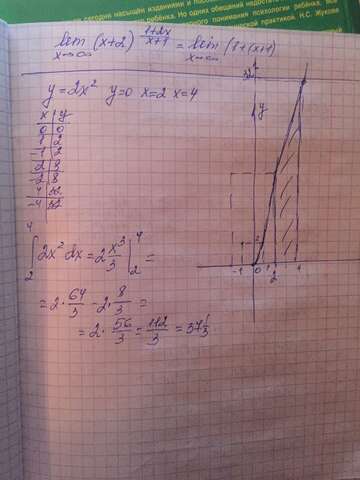 сегодня насыщен изданиями и пос
Но одних обещаний недостаточно
понимания психологии ребёнка, всё
практикой. Н.С. Жукова
lim (x+2) 1+2x/x+1 = lim (1+(x+1)
x→∞ x→∞
y=2x² y=0 x=2 x=4
x | y
0 | 0
1 | 2
-1 | 2
2 | 8
-2 | 8
4 | 32
-4 | 32
∫₂⁴ 2x² dx = 2 x³/3 |₂⁴ =
= 2·64/3 - 2·8/3 =
= 2·56/3 = 112/3 = 37 1/3
32
y
-1 0 1 2 4